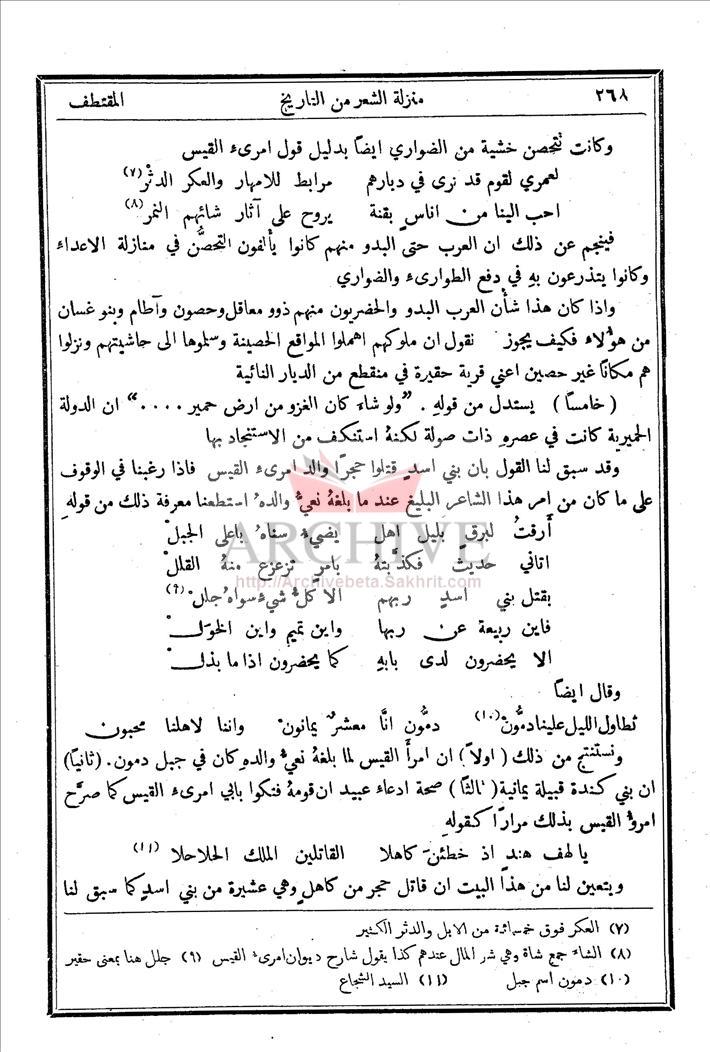 ٢٦٨ منزلة الشعر من التاريخ المقتطف
وكانت تتحصن خشية من الضواري ايضاً بدليل قول امرىء القيس
لعمري لقوم قد نرى في ديارهم مرابط للامهار والعكر الدثر (٧)
احب الينا من اناس بقنة يروح على آثار شائهم النمر (٨)
فينجم عن ذلك ان العرب حتى البدو منهم كانوا يألفون التحصُّن في منازلة الاعداء
وكانوا يتذرعون بهِ في دفع الطوارىء والضواري
واذا كان هذا شأن العرب البدو والحضريون منهم ذوو معاقل وحصون وآطام وبنو غسان
من هؤلاء فكيف يجوز نقول ان ملوكهم اهملوا المواقع الحصينة وسلموها الى حاشيتهم ونزلوا
هم مكاناً غير حصين اعني قرية حقيرة في منقطع من الديار النائية
( خامساً ) يستدل من قولهِ . ”ولو شاء كان الغزو من ارض حمير ....“ ان الدولة
الحميرية كانت في عصرهِ ذات صولة لكنهُ استنكف من الاستنجاد بها
وقد سبق لنا القول بان بني اسدٍ قتلوا حجراً والد امرىء القيس فاذا رغبنا في الوقوف
على ما كان من امر هذا الشاعر البليغ عند ما بلغهُ نعيُ والدهُ استطعنا معرفة ذلك من قولهِ
أَرقتُ لبرق بليل اهل يضيءُ سناهُ باعلى الجبل
اتاني حديث فكذَّبتهُ بامرٍ تزعزع منهُ القللْ
بقتل بني اسدٍ ربهم الا كلُّ شيءٍ سواهُ جللْ (٩)
فاين ربيعة عن ربها واين تميم واين الخوَلْ
الا يحضرون لدى بابهِ كما يحضرون اذا ما بذلْ
وقال ايضاً
تطاول الليل علينا دمُّونْ (١٠) دمُّون انَّا معشرٌ يمانونْ واننا لاهلنا محبون
ونستنتج من ذلك ( اولاً ) ان امرأَ القيس لما بلغهُ نعيُ والدهِ كان في جبل دمون . (ثانياً)
ان بني كندة قبيلة يمانية ( ثالثاً ) صحة ادعاء عبيد ان قومهُ فتكوا بابي امرىء القيس كما صرَّح
امروءُ القيس بذلك مراراً كقولهِ
يا لهف هندٍ اذ خطئنَ كاهلا القاتلين الملك الحلاحلا (١١)
ويتعين لنا من هذا البيت ان قاتل حجر من كاهلٍ وهي عشيرة من بني اسدٍ كما سبق لنا
(٧) العكر فوق خمسمائة من الابل والدثر الكثير
(٨) الشاء جمع شاة وهي شر المال عندهم كذا يقول شارح ديوان امرىء القيس (٩) جلل هنا بمعنى حقير
(١٠) دمون اسم جبل (١١) السيد الشجاع
ARCHIVE
http://Archivebeta.Sakhrit.com